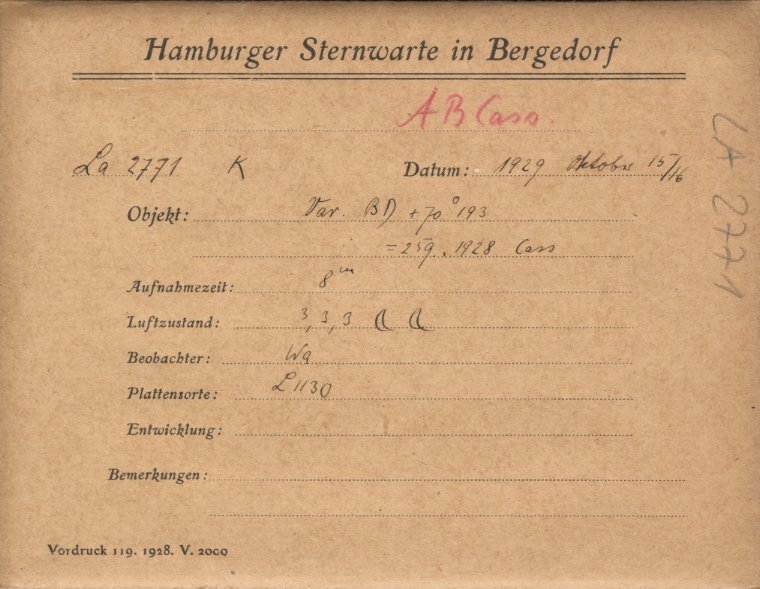 Hamburger Sternwarte in Bergedorf
AB Cass.
La 2771 K Datum: 1929 Oktober 15/16
Objekt: Var. BD +70° 193
= 259.1928 Cass
Aufnahmezeit: 8m
Luftzustand: 3, 3, 3
Beobachter: Wa
Plattensorte: L 1130
Entwicklung:
Bemerkungen:
Vordruck 119. 1928. V. 2000
LA 2771